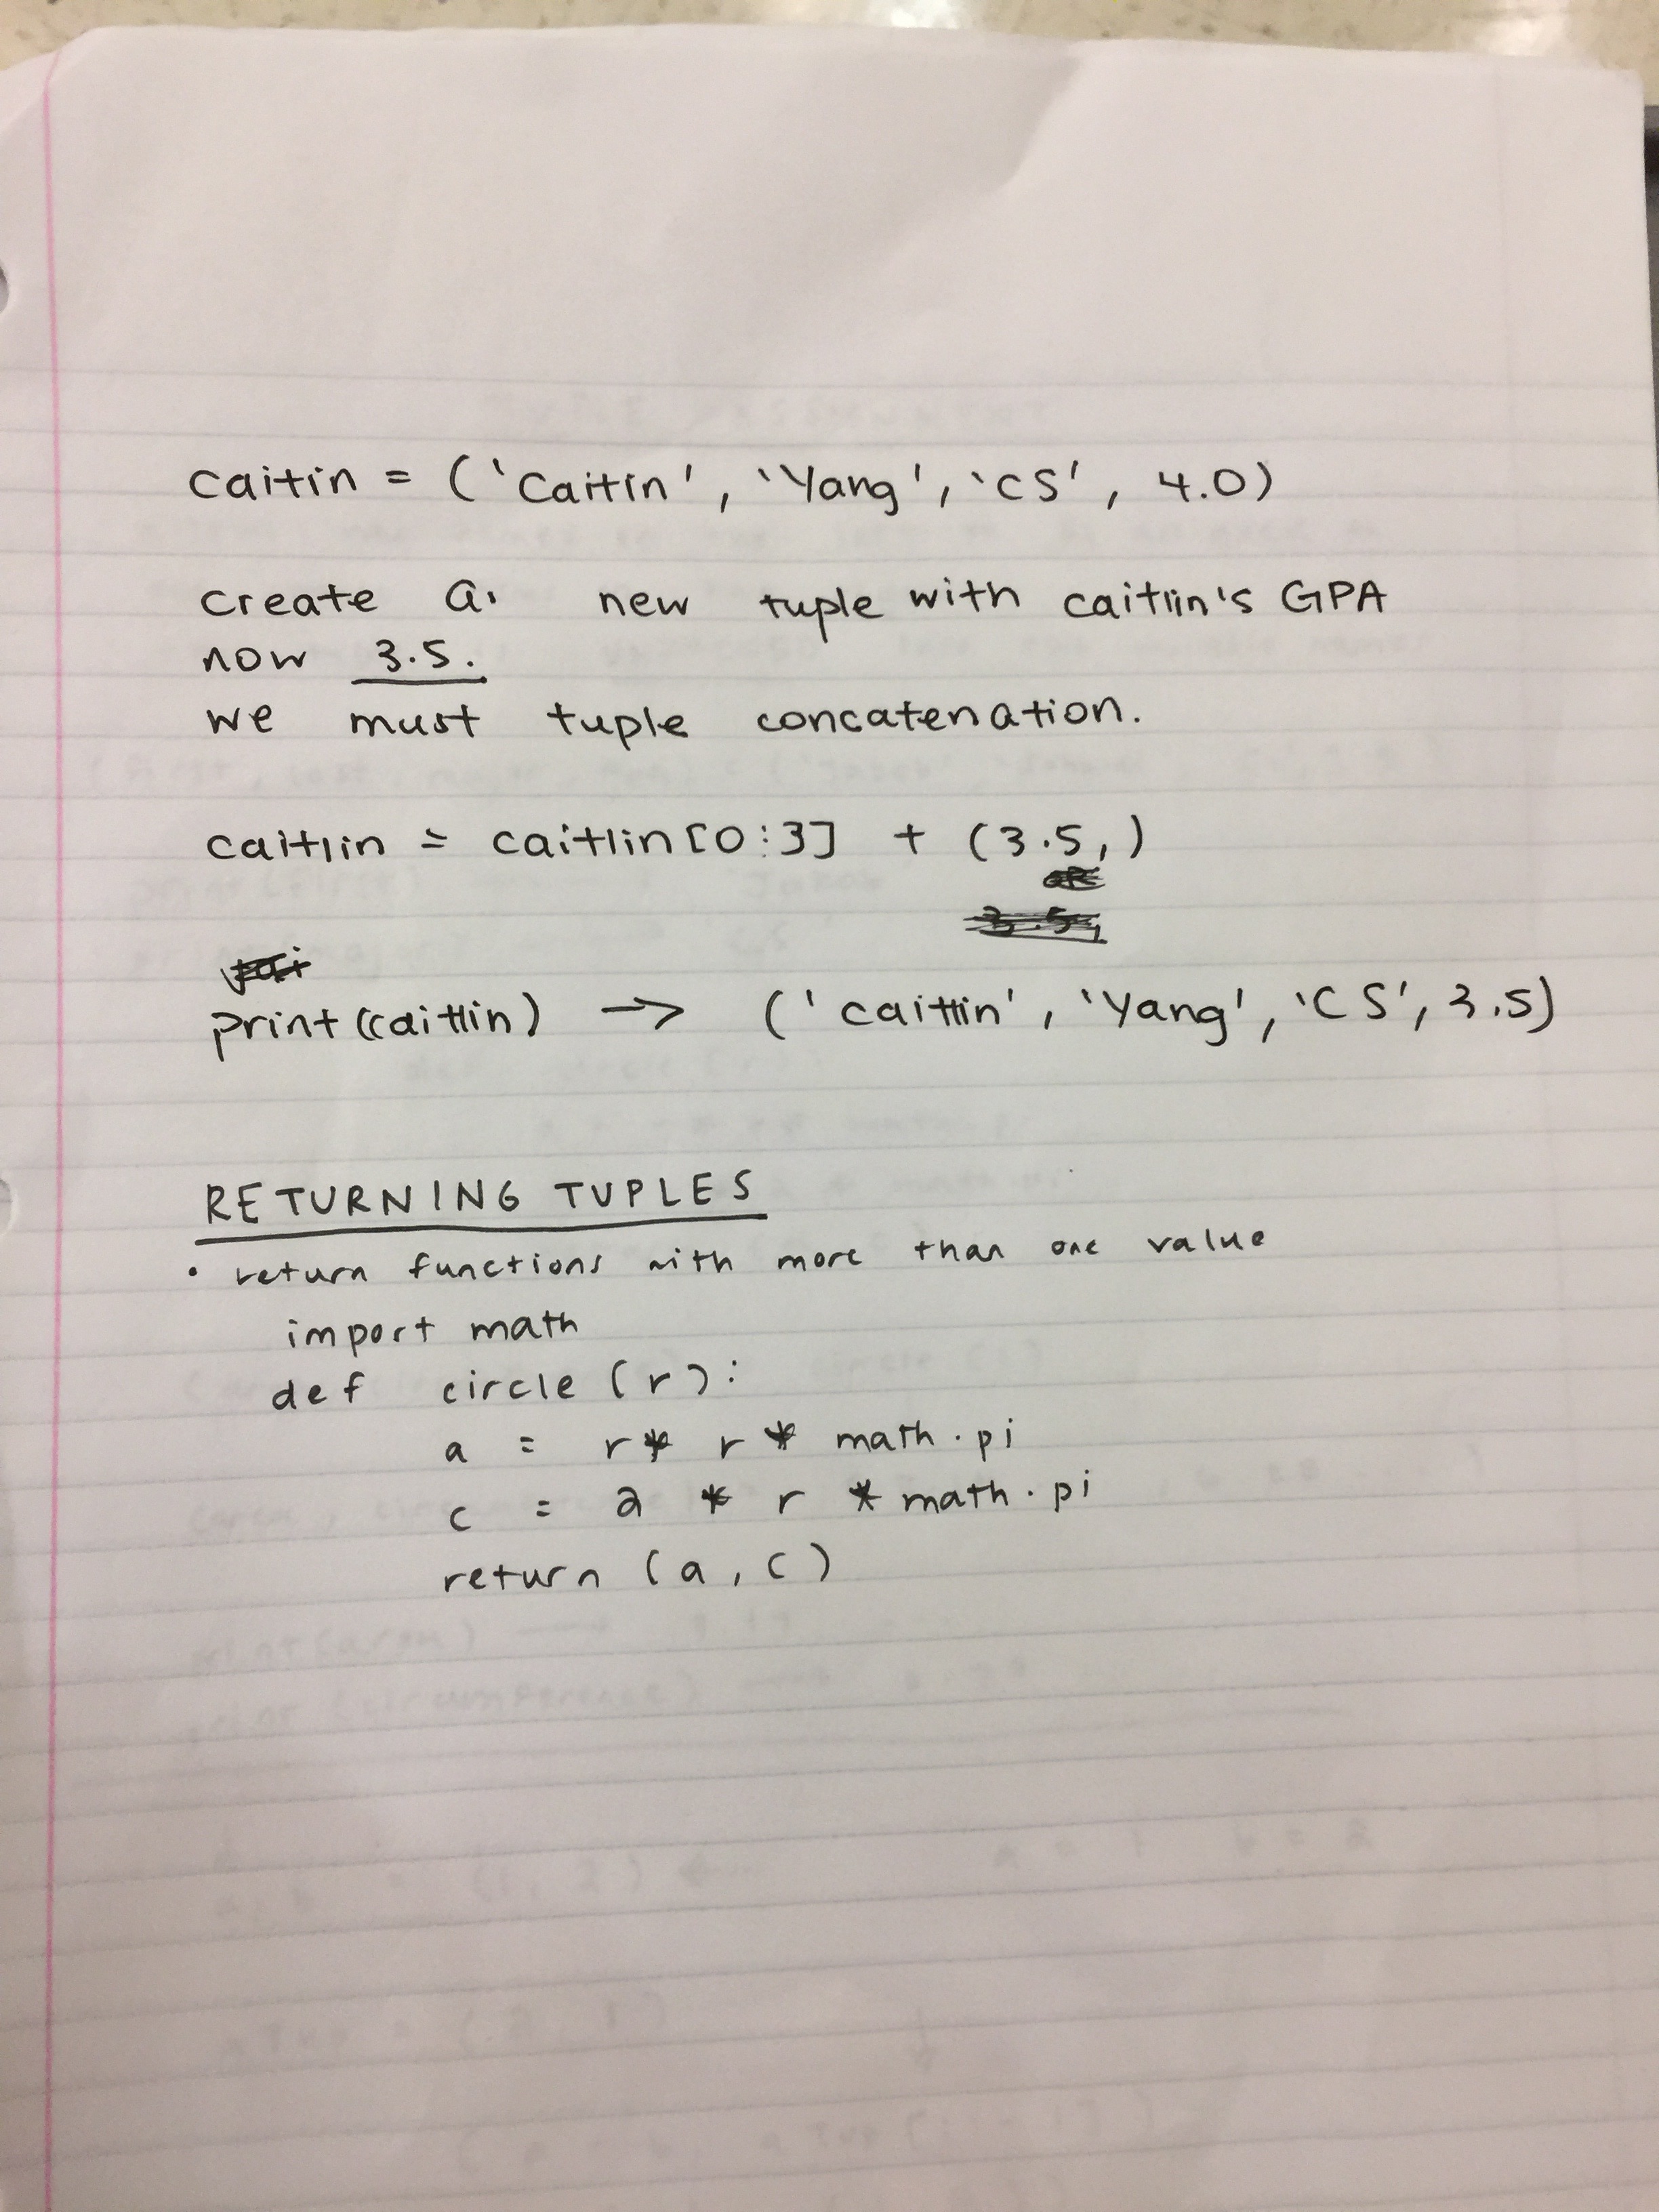 caitin = ('Caitin', 'Yang', 'CS', 4.0)
create a new tuple with caitlin's GPA
now 3.5.
we must tuple concatenation.
caitlin = caitlin[0:3] + (3.5,)
print(caitlin) → ('caitlin', 'Yang', 'CS', 3.5)
RETURNING TUPLES
• return functions with more than one value
import math
def circle (r):
a = r* r * math.pi
c = 2 * r * math.pi
return (a, c)